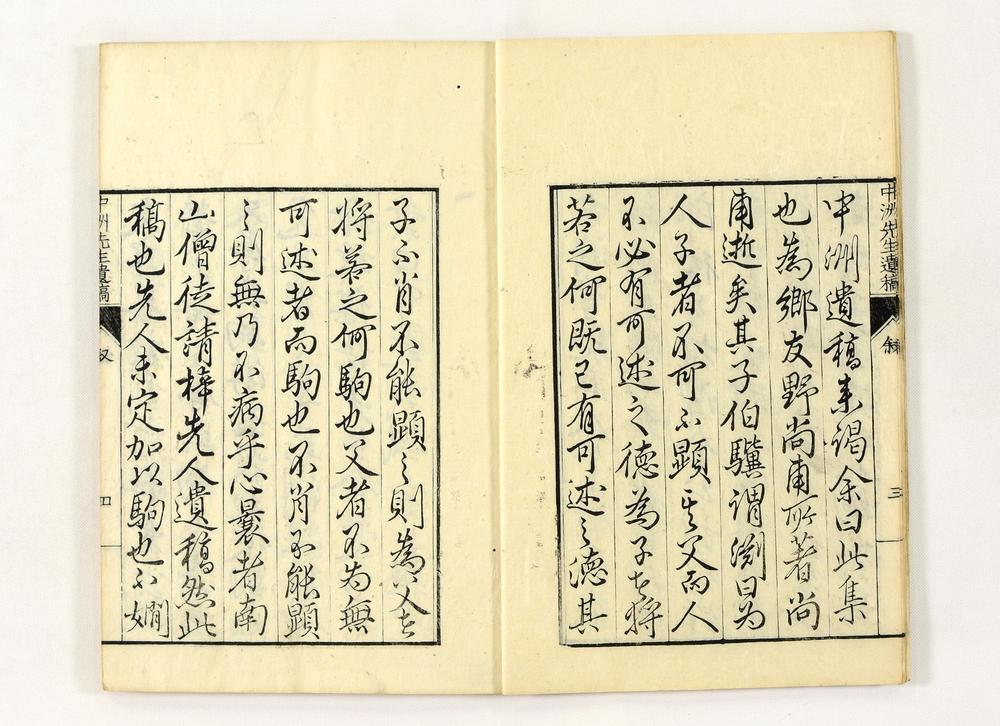 中洲先生遺稿
叙
三
中洲遺稿来謁余曰此集
也為郷友野尚甫所著尚
甫逝矣其子伯驥謂渕曰為
人子者不可不顕其父而人
不必有可述之德為子者将
若之何既已有可述之德其
子不肖不能顕之則為人父者
将若之何駒也父者不為無
可述者而駒也不肖不能顕
之則無乃不病乎心曩者南
山僧徒請梓先人遺稿然此
稿也先人未定加以駒也不嫺
中洲先生遺稿
叙
四